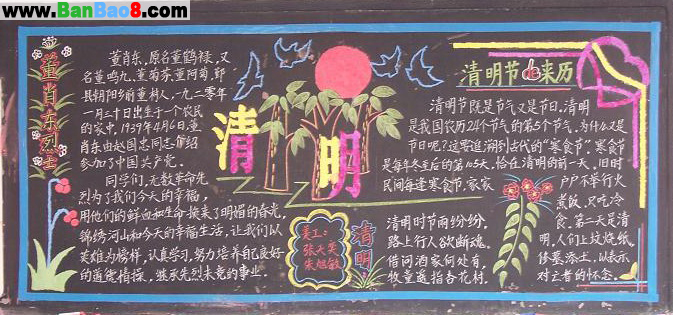 www.BanBao8.com
董肖东烈士
董肖东,原名董鹤禄,又
名董鸣九、董菊芬、董阿菊,鄞
县朝阳乡前董村人,一九二零年
一月三十日出生于一个农民
的家中,1939年4月6日,董
肖东由赵国忠同志介绍
参加了中国共产党。
同学们,无数革命先
烈为了我们今天的幸福,
用他们的鲜血和生命换来了明媚的春光,
锦绣河山和今天的幸福生活,让我们以
英雄为榜样,认真学习,努力培养自己良好
的道德情操,继承先烈未竟的事业。
清
明
美工:
张天英
朱旭敏
清明
清明时节雨纷纷,
路上行人欲断魂。
借问酒家何处有,
牧童遥指杏花村。
清明节的来历
清明节既是节气又是节日,清明
是我国农历24个节气的第5个节气。为什么又是
节日呢?这要追溯到古代的“寒食节”。寒食节
是每年冬至后的第105天,恰在清明的前一天,旧时
民间每逢寒食节,家家
户户不举行火
煮饭,只吃冷
食。第二天是清
明,人们上坟烧纸,
修墓添土,以表示
对亡者的怀念。